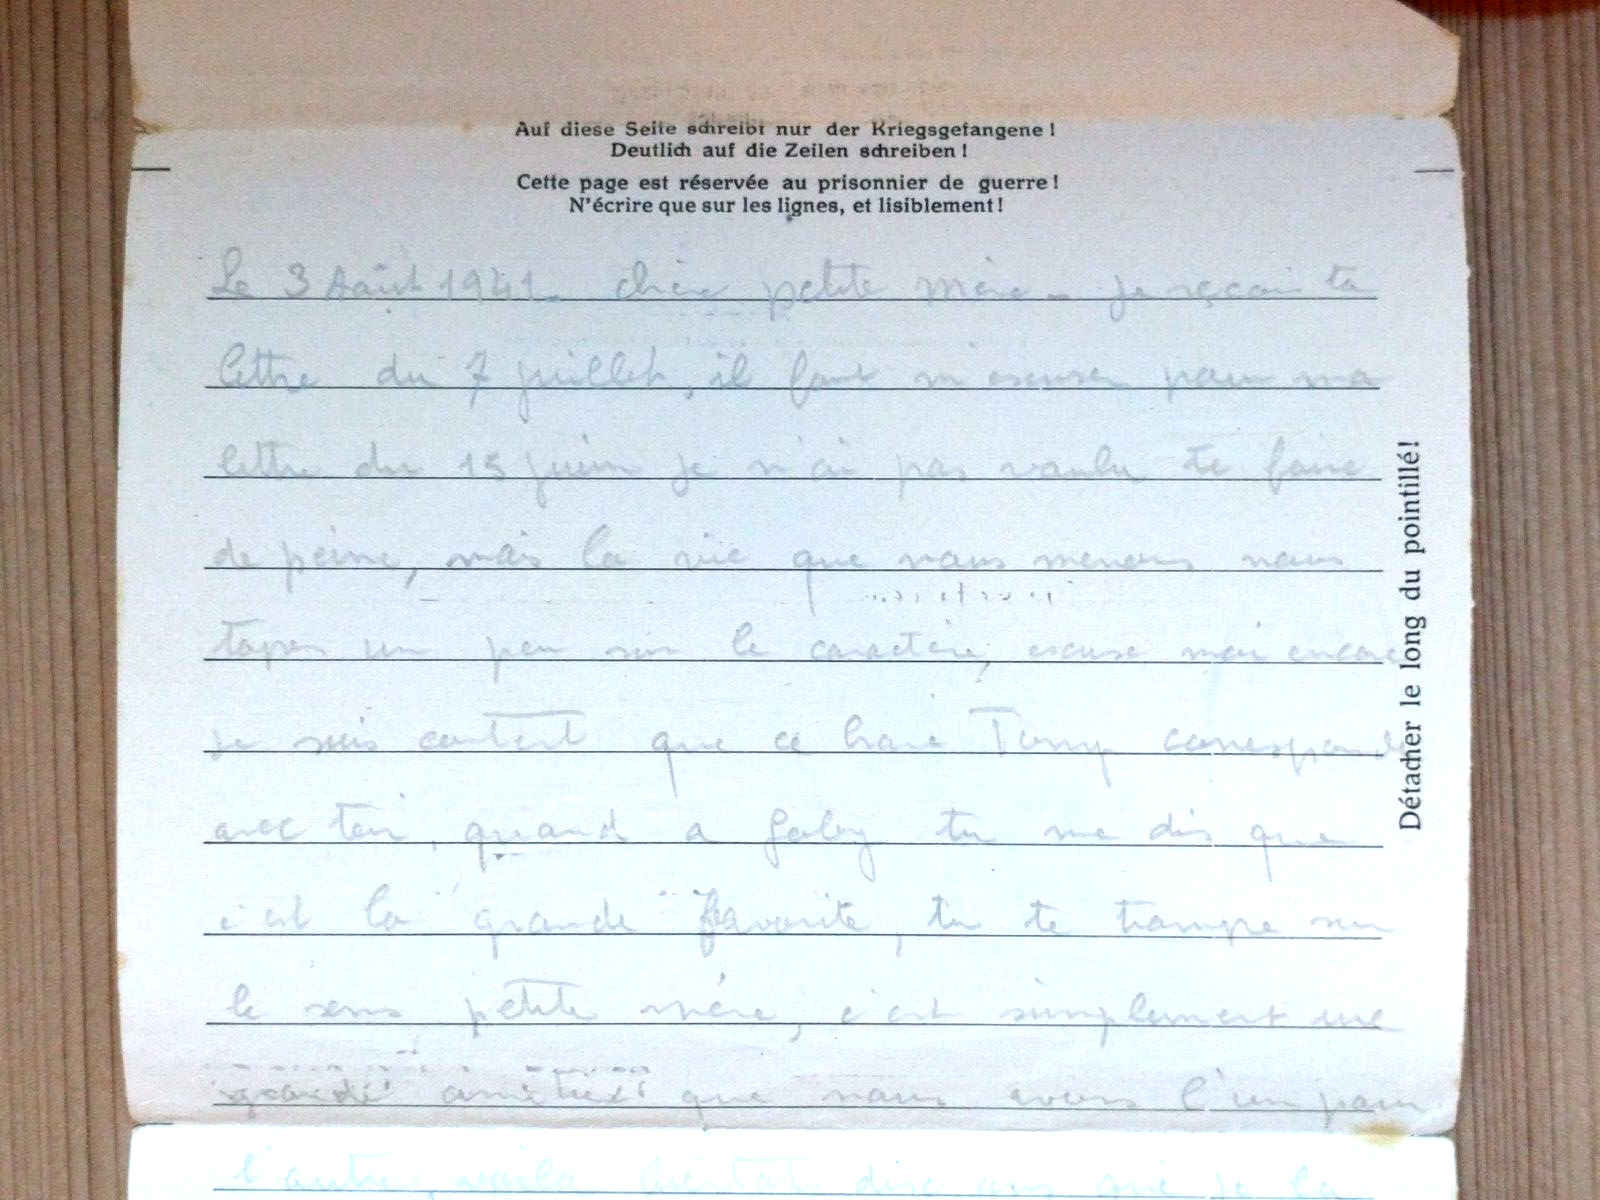 Auf diese Seite schreibt nur der Kriegsgefangene!
Deutlich auf die Zeilen schreiben!
Cette page est réservée au prisonnier de guerre!
N'écrire que sur les lignes, et lisiblement!
Le 3 Août 1941. chère petite mère. je reçois ta
lettre du 7 juillet, il faut m'excuser pour ma
lettre du 15 juin je n'ai pas voulu te faire
de peine, mais la vie que nous menons nous
tapes un peu sur le caractère, excuse moi encore
je suis content que ce brave Tony corresponde
avec toi, quand a Gaby tu me dis que
c'est la grande favorite, tu te trompe sur
le sens petite mère, c'est simplement une
grande amitié que nous avons l'un pour
l'autre, voila bientot dix ans que je la
Détacher le long du pointillé!